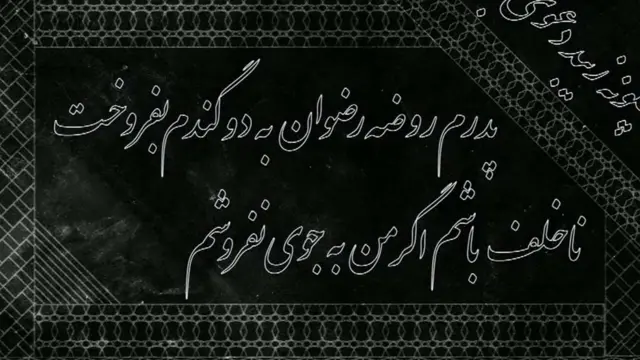 پدرم روضه رضوان به دو گندم بفروخت
ناخلف باشم اگر من به جوی نفروشم